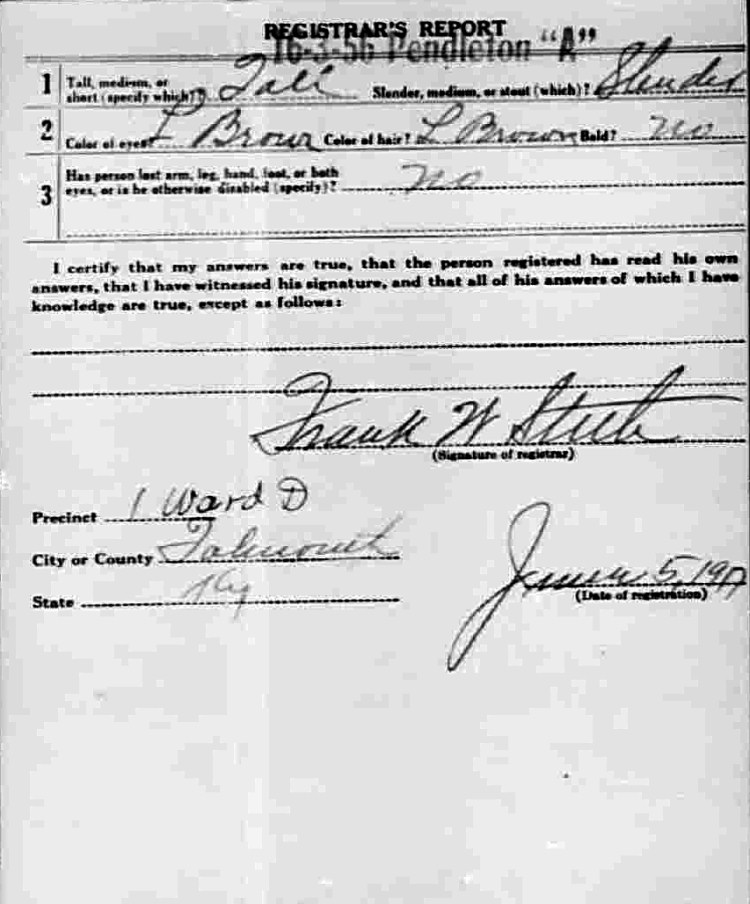 REGISTRAR'S REPORT
16-3-56 Pendleton "A"
1 Tall, medium, or short (specify which)? Tall Slender, medium, or stout (which)? Slender
2 Color of eyes? L Brown Color of hair? L Brown Bald? no
3 Has person lost arm, leg, hand, foot, or both
eyes, or is he otherwise disabled (specify)? no
I certify that my answers are true, that the person registered has read his own
answers, that I have witnessed his signature, and that all of his answers of which I have
knowledge are true, except as follows:
Frank W
(Signature of registrar)
Precinct 1 Ward D
City or County Falmouth
State Ky
June 5, 1917
(Date of registration)